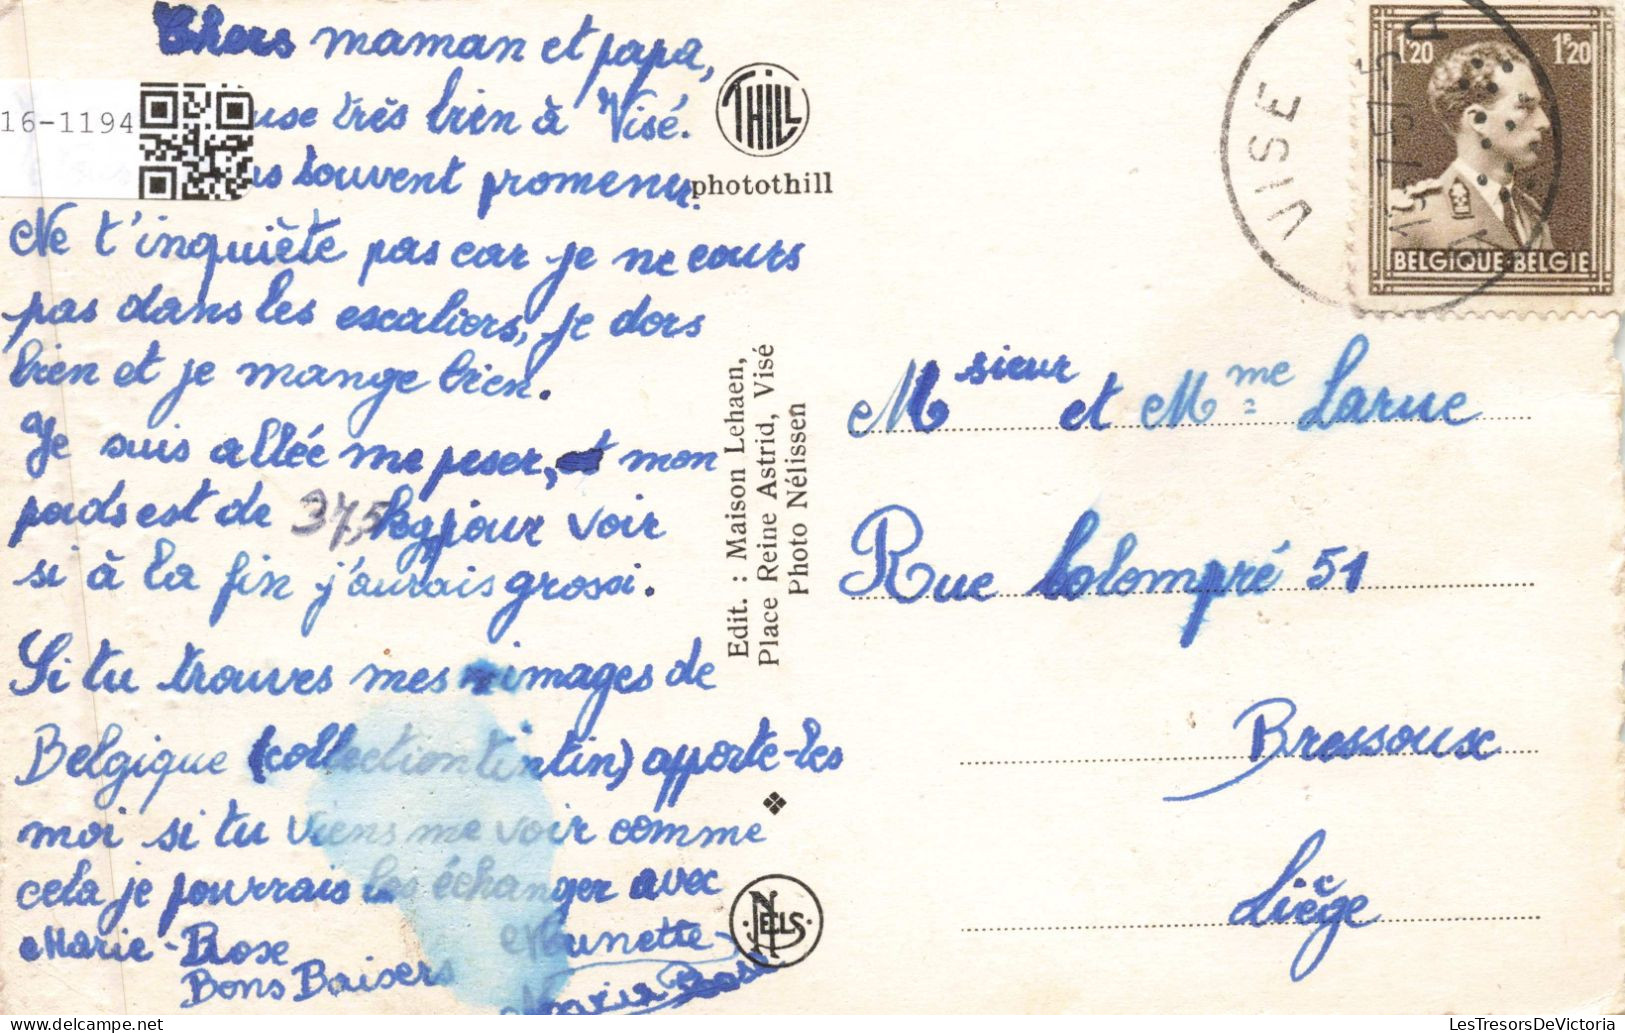 Chers maman et papa,
16-1194
use très bien à Visé.
us souvent promener.
Ne t'inquiète pas car je ne cours
pas dans les escaliers, je dors
bien et je mange bien.
Je suis allée me peser, et mon
poids est de 37,5 kg pour voir
si à la fin j'aurais grossi.
Si tu trouves mes images de
Belgique (collection tintin) apporte-les
moi si tu viens me voir comme
cela je pourrais les échanger avec
Marie-Rose Nunette
Bons Baisers
Marie Rose
THILL
photothill
Edit. : Maison Lehaen,
Place Reine Astrid, Visé
Photo Nélissen
NELS
VISE
1F20 1F20
BELGIQUE-BELGIE
Msieur et Mme Larue
Rue Colompré 51
Bressoux
Liège
LesTresorsDeVictoria.com